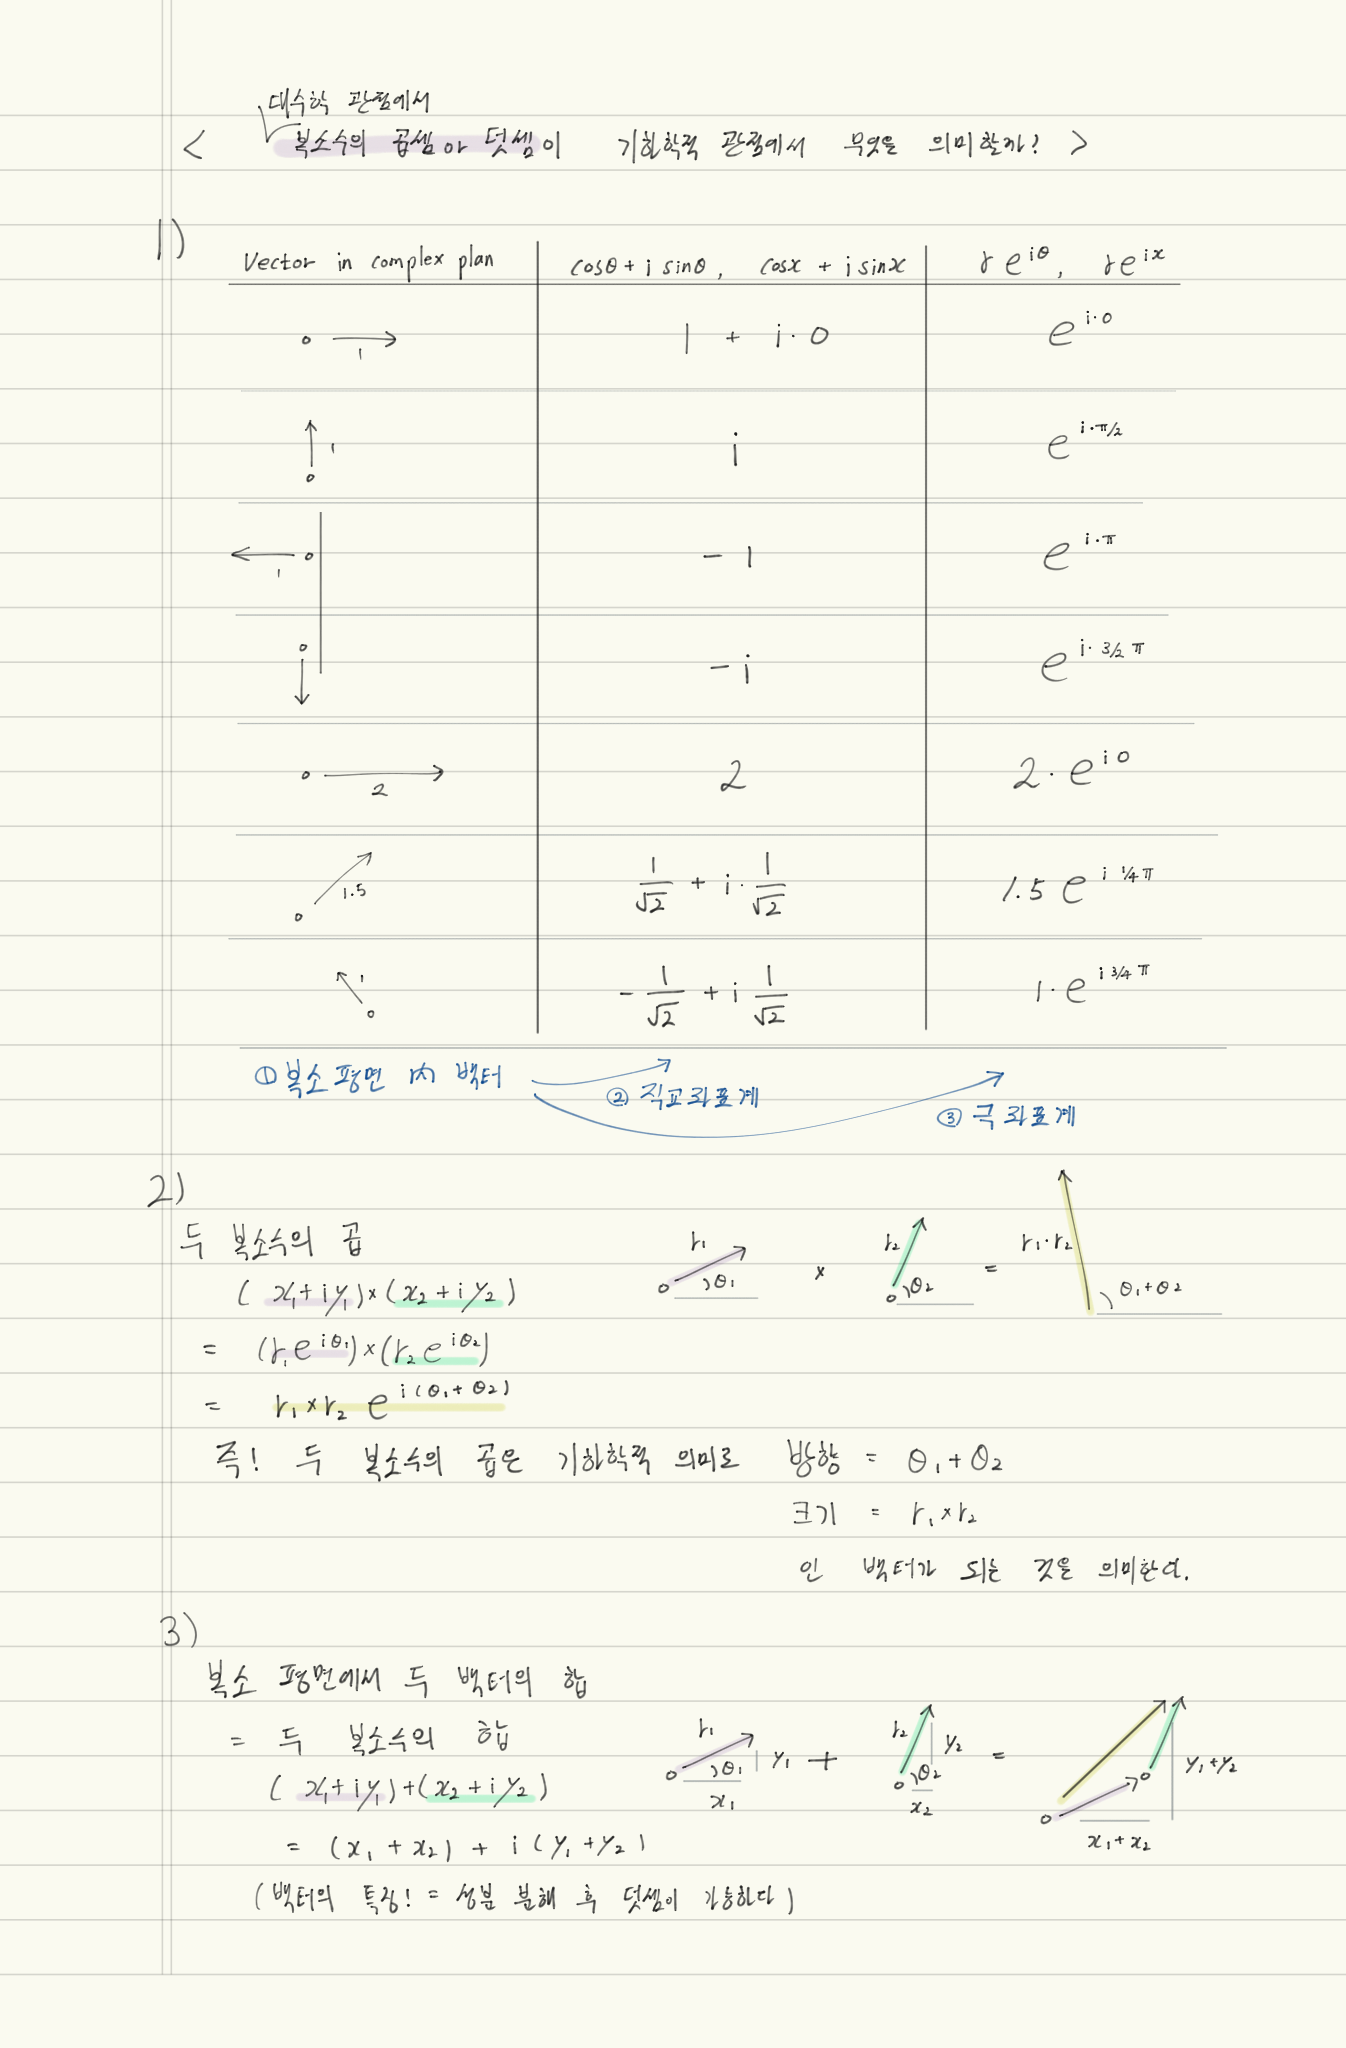 대수학 관점에서
< 복소수의 곱셈이 덧셈이 기하학적 관점에서 무엇을 의미할까? >
1)
Vector in complex plan | cosθ + i sinθ, cosx + i sinx | r e^{iθ}, r e^{ix}
1 | 1 + i·0 | e^{i·0}
1 | i | e^{i·π/2}
1 | -1 | e^{i·π}
-i | e^{i·3/2 π}
2 | 2 | 2·e^{i0}
1.5 | 1/√2 + i·1/√2 | 1.5 e^{i 1/4 π}
1 | -1/√2 + i 1/√2 | 1·e^{i 3/4 π}
① 복소 평면 內 벡터 ② 직교좌표계 ③ 극 좌표계
2)
두 복소수의 곱
(x₁ + iy₁) × (x₂ + iy₂)
= (r₁e^{iθ₁}) × (r₂e^{iθ₂})
= r₁ × r₂ e^{i(θ₁ + θ₂)}
r₁ θ₁ × r₂ θ₂ = r₁·r₂ θ₁+θ₂
즉! 두 복소수의 곱은 기하학적 의미로 방향 = θ₁ + θ₂
크기 = r₁ × r₂
인 벡터가 되는 것을 의미한다.
3)
복소 평면에서 두 벡터의 합
= 두 복소수의 합
(x₁ + iy₁) + (x₂ + iy₂)
= (x₁ + x₂) + i(y₁ + y₂)
r₁ θ₁ y₁ x₁ + r₂ θ₂ y₂ x₂ = y₁+y₂ x₁+x₂
(벡터의 특징! = 성분 분해 후 덧셈이 가능하다)